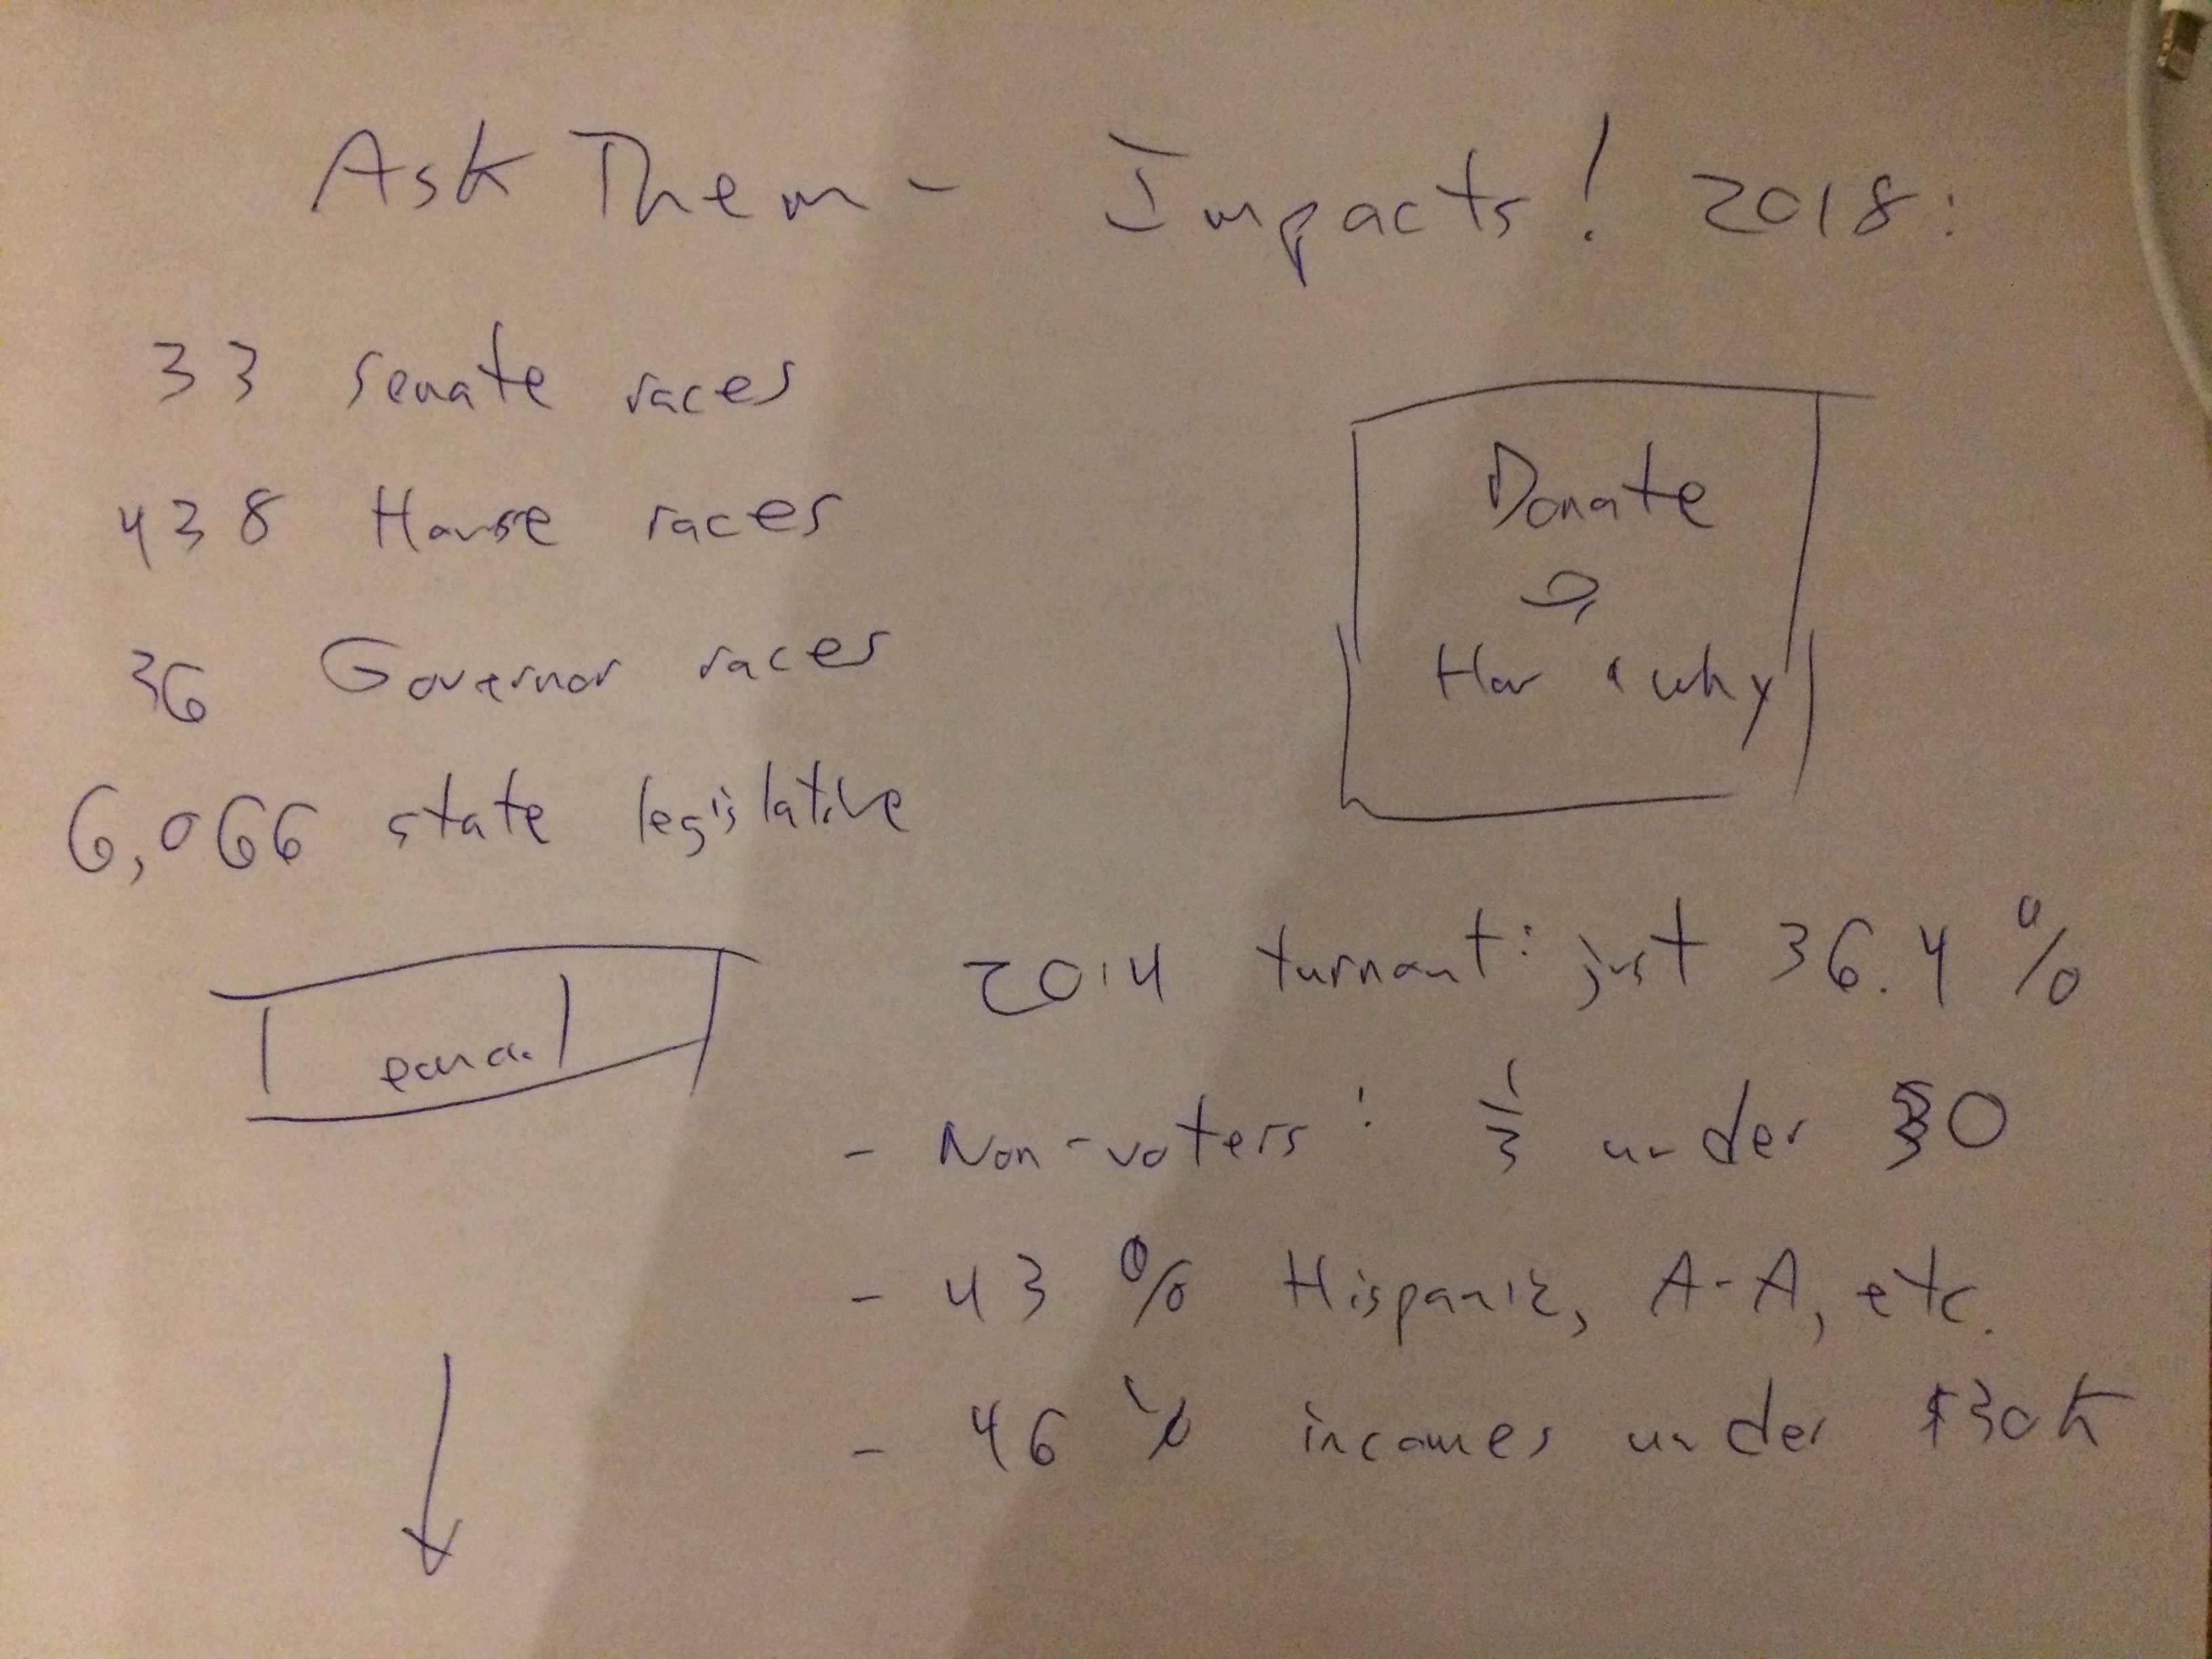 Ask Them - Impacts! 2018:
33 Senate races
438 House races
36 Governor races
6,066 state legislative
Donate
How & why
email
2014 turnout: just 36.4%
- Non-voters: 1/3 under 30
- 43% Hispanic, A-A, etc.
- 46% incomes under $30K